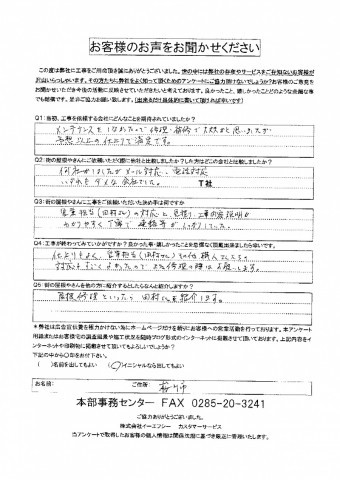 お客様のお声をお聞かせください
この度は弊社に工事をご用命頂き誠にありがとうございました。世の中には弊社の存在やサービスをご存知ないお客様が
沢山いらっしゃいます。その方たちに弊社をよく知って頂くためのアンケートにご協力頂けないでしょうか?お客様のご意見を
お聞かせいただき今後の活動に反映させていただきたいと考えております。良かったこと、嬉しかったことどのような些細な事
でも結構です。是非ご協力お願い致します。(出来るだけ具体的に書いて頂ければ幸いです)
Q1 当初、工事を依頼する会社にどんなことを期待されていましたか?
予想以上の仕上りで満足です。
Q2 街の屋根やさんにご依頼いただく際に他社と比較しましたか?した方はどこの会社と比較しましたか?
何社かしましたがメール対応、電話対応
いずれもダメな会社でした。
T社
Q3 街の屋根やさんに工事を依頼いただいた決め手は何ですか
営業担当(田村さん)の対応と見積り、工事内容説明が
わかりやすく丁寧で
Q4 工事が終わってみていかがですか?良かった事・嬉しかったことを忌憚なく御意見頂きましたら幸いです。
仕上りもよく、営業担当(田村さん)その他職人さんも
対応がすごくよかったので又、修理の時はお願いします。
Q5 街の屋根やさんを他の方に紹介するとしたらなんと紹介しますか?
屋根修理といったら田村さんを紹介します。
※弊社は広告宣伝費を極力かけない為にホームページだけを頼りにお客様への営業活動を行っております。本アンケート
用紙またはお客様宅の調査風景や施工状況を随時ブログ形式のインターネットに掲載させて頂いております。上記内容をイ
ンターネットや印刷物に掲載させて頂いてもよろしいでしょうか?
下記の中から〇印をお付け下さい。
( )名前を出してもよい (〇)イニシャルなら出してもよい
お名前: ご住所:
本部事務センター FAX 0285-20-3241
ご協力ありがとうございました。
株式会社イーエフシー カスタマーサービス
当アンケートで取得したお客様の個人情報は関係法規に基づき厳正に管理いたします。